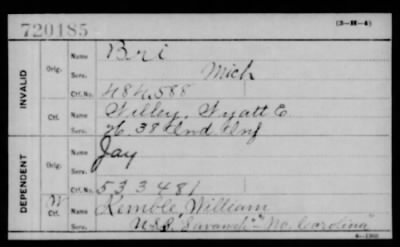 720185
(3-H-4)
INVALID
Orig.
Name Bri
Serv. Mich
Ctf. No. 484,588
Ctf.
Name Nilley, Wyatt E
Serv. H. 38" Ind Inf
DEPENDENT
Orig.
Name Jay
Serv.
Ctf. No. 533481
W
Ctf.
Name Kemble, William
Serv. U.S.S. "Savanah" "No. Carolina"